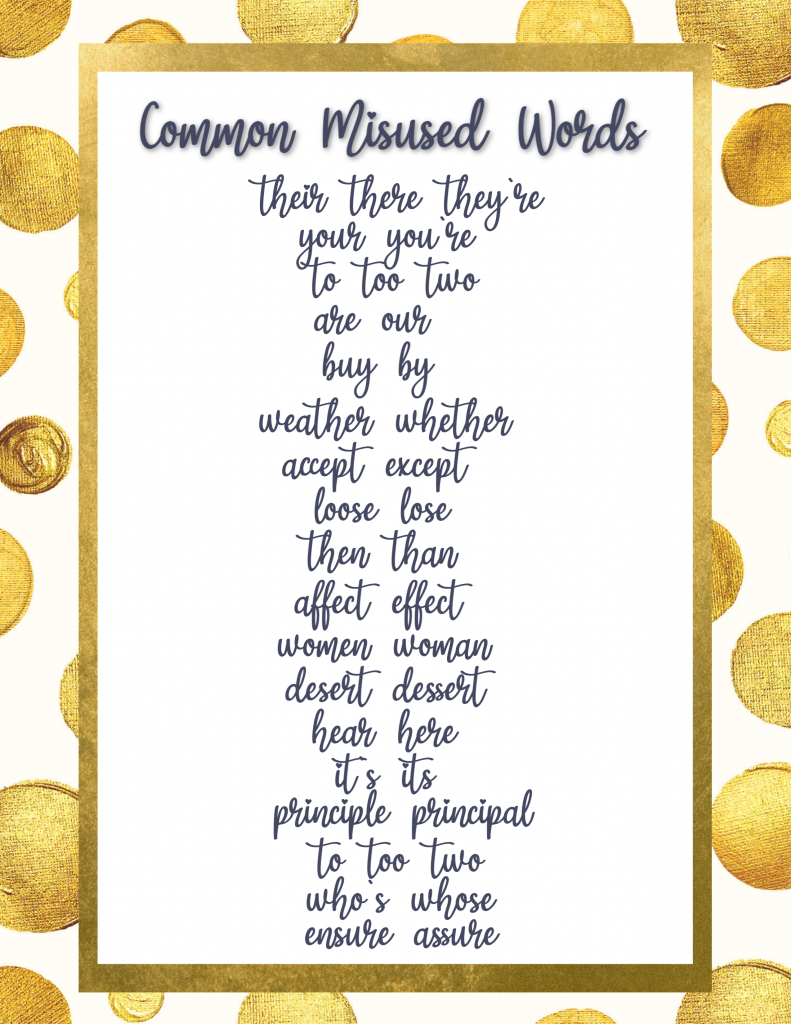 Common Misused Words
their there they`re
your you`re
to too two
are our
buy by
weather whether
accept except
loose lose
then than
affect effect
women woman
desert dessert
hear here
it`s its
principle principal
to too two
who`s whose
ensure assure